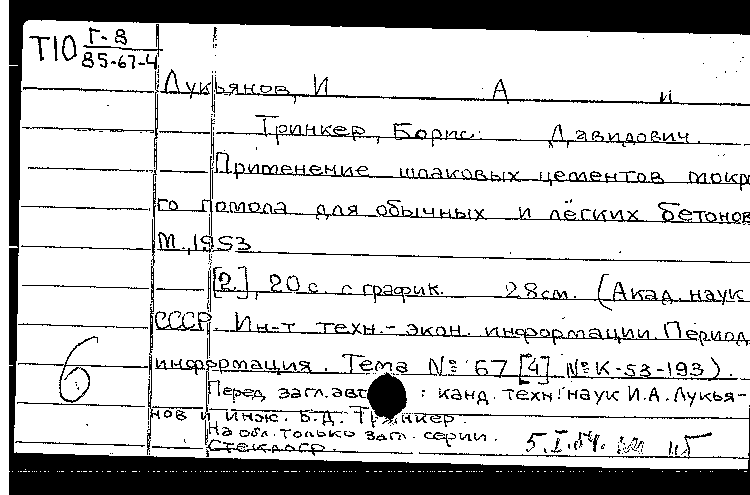 Т10 Г-8
85-67-4
Лукьянов, И А и
Тринкер, Борис Давидович.
Применение шлаковых цементов мокр
го помола для обычных и лёгких бетонов
М., 1953
[2], 20 с. с график. 28 см. (Акад. наук
СССР. Ин-т техн.-экон. информации. Период.
информация. Тема № 67 [4] № К-53-193).
6
Перед загл. авт : канд. техн. наук И.А. Лукья-
нов и инж. Б.Д. Тринкер.
На обл. только загл. серии.
Стеклогр.
5.I.54.